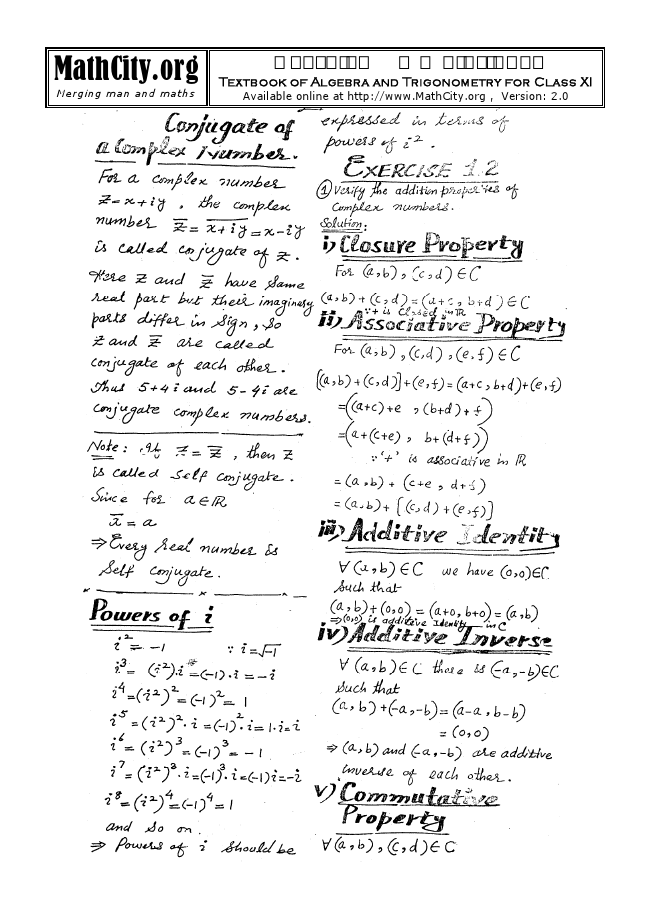 MathCity.org
Merging man and maths
TEXTBOOK OF ALGEBRA AND TRIGONOMETRY FOR CLASS XI
Available online at http://www.MathCity.org , Version: 2.0
Conjugate of
a Complex Number.
For a complex number
z = x+iy , the complex
number z̅ = \overline{x+iy} = x-iy
is called conjugate of z.
Here z and z̅ have same
real part but their imaginary
parts differ in sign, so
z and z̅ are called
conjugate of each other.
Thus 5+4i and 5-4i are
conjugate complex numbers.
Note: If z = z̅ , then z
is called self conjugate.
Since for a ∈ ℝ
a̅ = a
⇒ Every real number is
Self conjugate.
Powers of i
i² = -1 ∵ i = √-1
i³ = (i²).i = (-1).i = -i
i⁴ = (i²)² = (-1)² = 1
i⁵ = (i²)².i = (-1)².i = 1.i = i
i⁶ = (i²)³ = (-1)³ = -1
i⁷ = (i²)³.i = (-1)³.i = (-1)i = -i
i⁸ = (i²)⁴ = (-1)⁴ = 1
and so on.
⇒ Powers of i should be
expressed in terms of
powers of i².
EXERCISE 1.2
① Verify the addition properties of
complex numbers.
Solution:
i) Closure Property
For (a,b) , (c,d) ∈ C
(a,b) + (c,d) = (a+c , b+d) ∈ C
∵ + is closed in ℝ
ii) Associative Property
For (a,b) , (c,d) , (e,f) ∈ C
[(a,b)+(c,d)]+(e,f) = (a+c, b+d)+(e,f)
= ((a+c)+e , (b+d)+f)
= (a+(c+e) , b+(d+f))
∵ '+' is associative in ℝ
= (a,b) + (c+e , d+f)
= (a,b) + [(c,d) + (e,f)]
iii) Additive Identity
∀ (a,b) ∈ C we have (0,0) ∈ C
such that
(a,b)+(0,0) = (a+0, b+0) = (a,b)
⇒ (0,0) is additive Identity in C
iv) Additive Inverse
∀ (a,b) ∈ C there is (-a,-b) ∈ C
such that
(a,b) + (-a,-b) = (a-a , b-b)
= (0,0)
⇒ (a,b) and (-a,-b) are additive
inverse of each other.
v) Commutative
Property
∀ (a,b) , (c,d) ∈ C